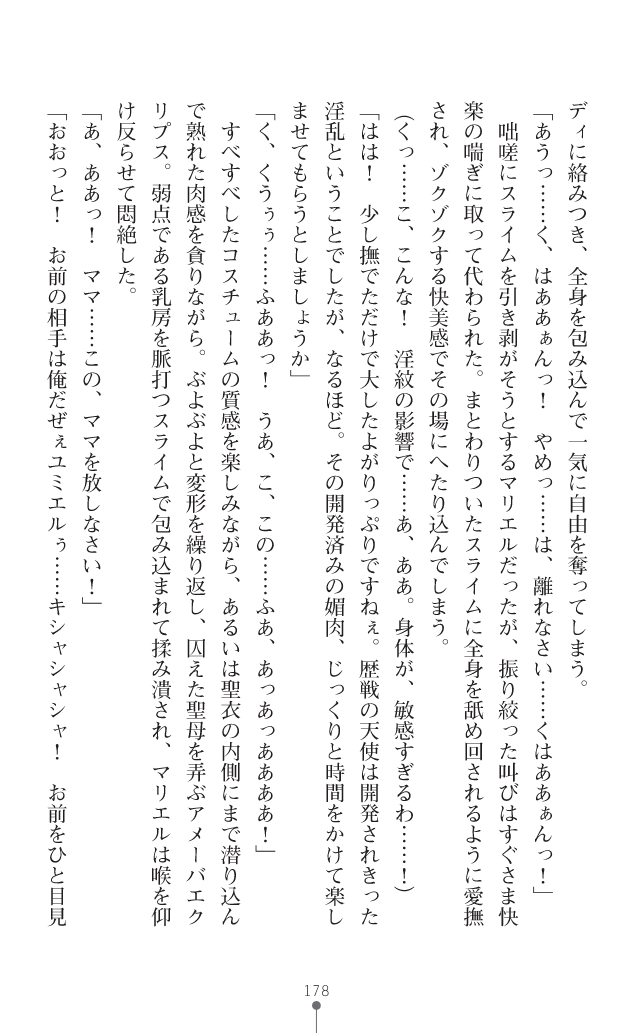 ディに絡みつき、全身を包み込んで一気に自由を奪ってしまう。
「あうっ……く、はああぁんっ！　やめっ……は、離れなさい……くはああぁんっ！」
　咄嗟にスライムを引き剥がそうとするマリエルだったが、振り絞った叫びはすぐさま快
楽の喘ぎに取って代わられた。まとわりついたスライムに全身を舐め回されるように愛撫
され、ゾクゾクする快美感でその場にへたり込んでしまう。
（くっ……こ、こんな！　淫紋の影響で……あ、ああ。身体が、敏感すぎるわ……！）
「はは！　少し撫でただけで大したよがりっぷりですねぇ。歴戦の天使は開発されきった
淫乱ということでしたが、なるほど。その開発済みの媚肉、じっくりと時間をかけて楽し
ませてもらうとしましょうか」
「く、くうぅぅ……ふああっ！　うあ、こ、この……ふあ、あっあっああああ！」
　すべすべしたコスチュームの質感を楽しみながら、あるいは聖衣の内側にまで潜り込ん
で熟れた肉感を貪りながら。ぶよぶよと変形を繰り返し、囚えた聖母を弄ぶアメーバエク
リプス。弱点である乳房を脈打つスライムで包み込まれて揉み潰され、マリエルは喉を仰
け反らせて悶絶した。
「あ、ああっ！　ママ……この、ママを放しなさい！」
「おおっと！　お前の相手は俺だぜぇユミエルぅ……キシャシャシャ！　お前をひと目見
178